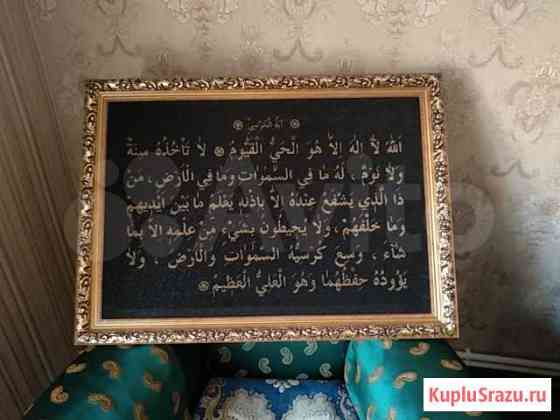 آية الكرسي
اَللهُ لاَ إِلٰهَ إِلاَّ هُوَ الْحَيُّ الْقَيُّومُ ۞ لاَ تَأْخُذُهُ سِنَةٌ
وَلاَ نَوْمٌ ، لَهُ مَا فِي السَّمٰوَاتِ وَمَا فِي الْأَرْضِ ، مَنْ
ذَا الَّذِي يَشْفَعُ عِنْدَهُ إِلاَّ بِإِذْنِهِ يَعْلَمُ مَا بَيْنَ أَيْدِيهِمْ
وَمَا خَلْفَهُمْ ، وَلاَ يُحِيطُونَ بِشَيْءٍ مِنْ عِلْمِهِ إِلاَّ بِمَا
شَاءَ ، وَسِعَ كُرْسِيُّهُ السَّمٰوَاتِ وَالْأَرْضَ ، وَلاَ
يَؤُودُهُ حِفْظُهُمَا وَهُوَ الْعَلِيُّ الْعَظِيمُ ۞
Avito
KupluSrazu.ru